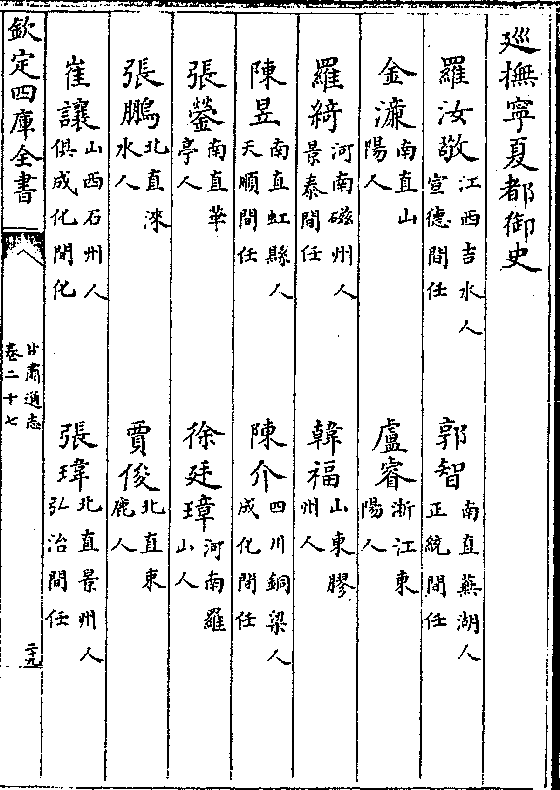 廵撫寧夏都御史
羅汝敬 江西吉水人宣德間任 郭智 南直蕪湖人正統間任
金濂 南直山陽人 盧睿 浙江東陽人
羅綺 河南磁州人景泰間任 韓福 山東膠州人
陳昱 南直虹縣人天順間任 陳介 四川銅梁人成化間任
張鎣 南直華亭人 徐廷璋 河南羅山人
張鵬 北直淶水人 賈俊 北直束鹿人
崔讓 山西石州人俱成化間化 張瑋 北直景州人弘治間任
欽定四庫全書 甘肅通志卷二十七 二十九